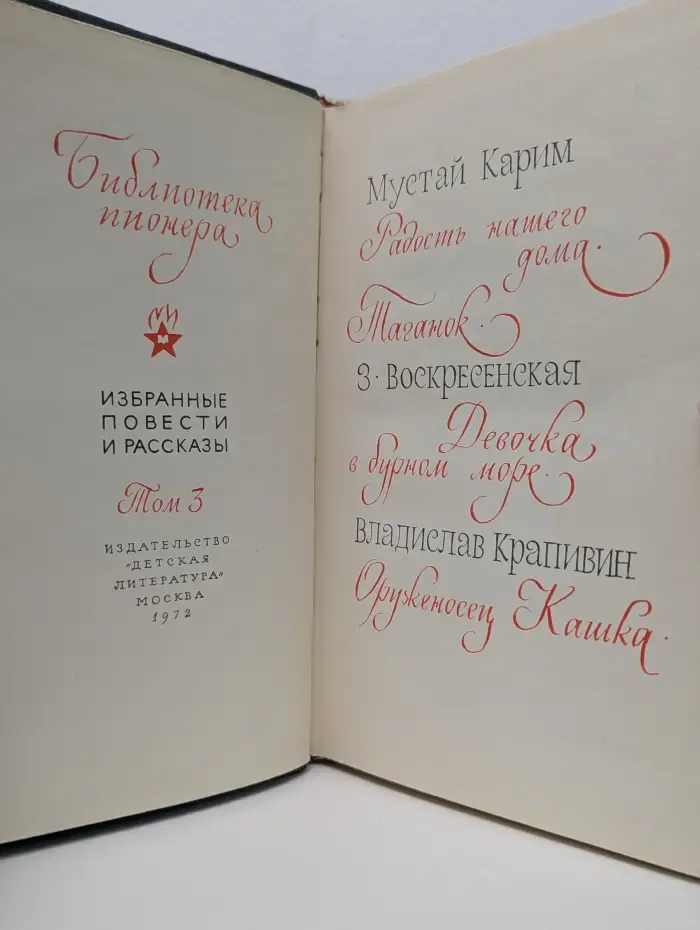 Библиотека
пионера
ИЗБРАННЫЕ
ПОВЕСТИ
И РАССКАЗЫ
Том 3
ИЗДАТЕЛЬСТВО
"ДЕТСКАЯ
ЛИТЕРАТУРА"
МОСКВА
1972
Мустай Карим
Радость нашего
дома.
Таганок.
З. Воскресенская
Девочка
в бурном море.
Владислав Крапивин
Оруженосец Кашка.